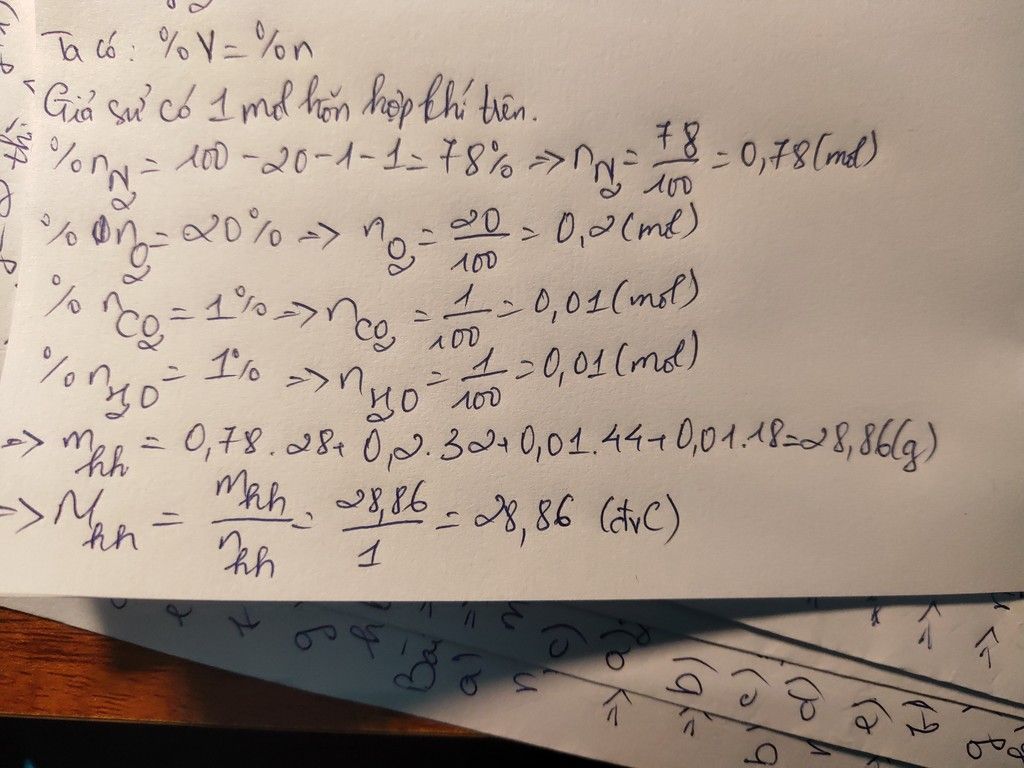 Ta có: %V = %n
Giả sử có 1 mol hỗn hợp khí trên.
%nN2 = 100 - 20 - 1 - 1 = 78% => nN2 = 78/100 = 0,78 (mol)
%nO2 = 20% => nO2 = 20/100 = 0,2 (mol)
%nCO2 = 1% => nCO2 = 1/100 = 0,01 (mol)
%nH2O = 1% => nH2O = 1/100 = 0,01 (mol)
=> mhh = 0,78.28+0,2.32+0,01.44+0,01.18=28,86(g)
=> Mhh = mhh/nhh = 28,86/1 = 28,86 (đvC)
Bà
a)
n
c)
=> a)
=> b)
c)
d)
e)
f)
g
b)
n